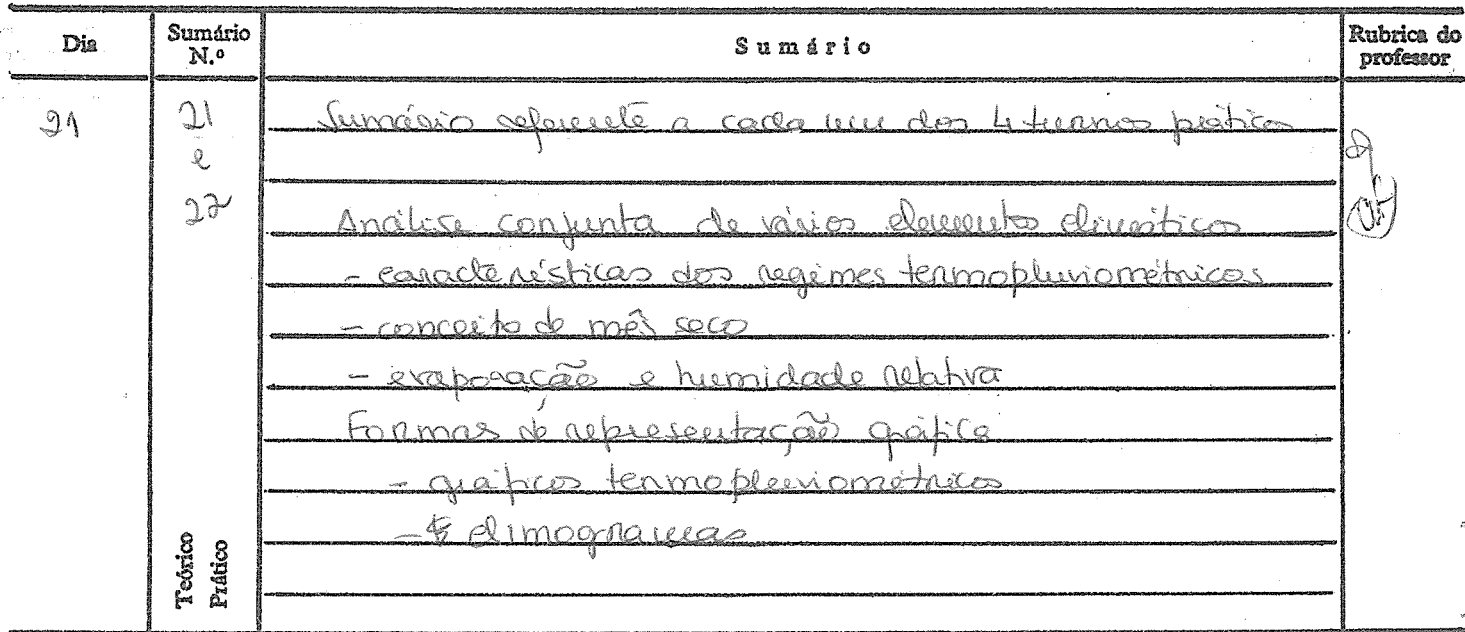 Dia Sumário N.º Sumário Rubrica do professor
21 21 e 22
Sumário referente a cada um dos 4 turnos práticos
Análise conjunta de vários elementos climáticos
- características dos regimes termopluviométricos
- conceito de mês seco
- evaporação e humidade relativa
Formas de representação gráfica
- gráficos termopluviométricos
- climogramas
Teórico
Prático